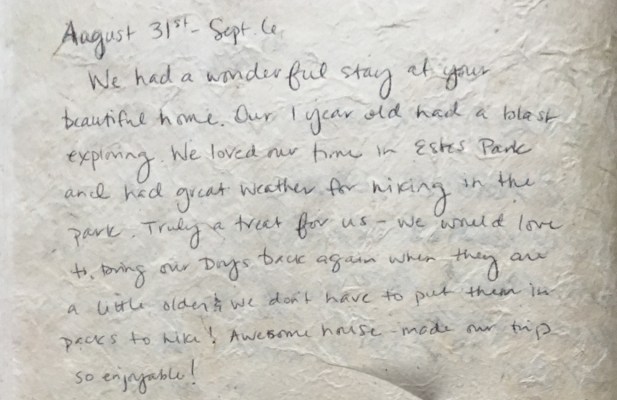 August 31st - Sept 6
We had a wonderful stay at your
beautiful home. Our 1 year old had a blast
exploring. We loved our time in Estes Park
and had great weather for hiking in the
park. Truly a treat for us - we would love
to bring our boys back again when they are
a little older & we don't have to put them in
packs to hike! Awesome house - made our trip
so enjoyable!